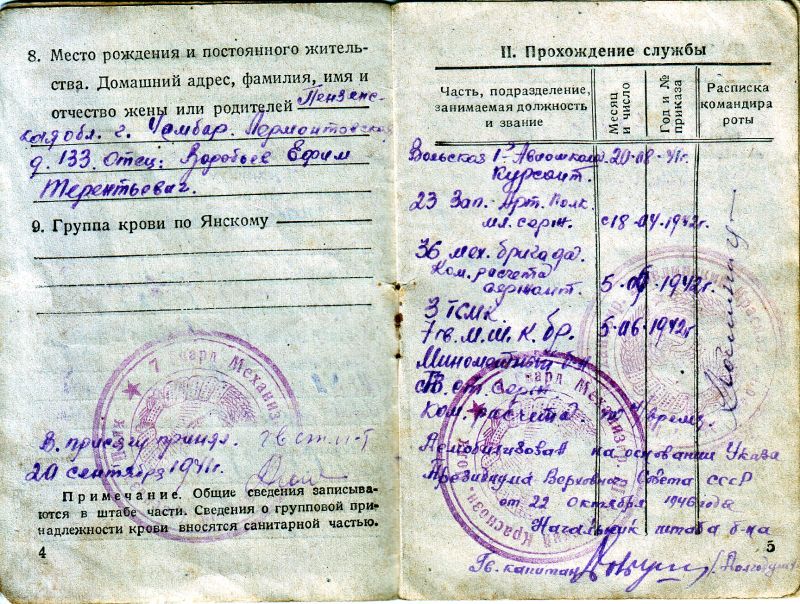 8. Место рождения и постоянного житель-
ства. Домашний адрес, фамилия, имя и
отчество жены или родителей Пензенс-
кая обл. г. Чембар. Лермонтовская
д. 133. Отец: Воробьев Ефим
Терентьевич.
9. Группа крови по Янскому
7 Гвард Механиз
В. присягу принял.
20 сентября 1941г.
Примечание. Общие сведения записыва-
ются в штабе части. Сведения о групповой при-
надлежности крови вносятся санитарной частью.
4
II. Прохождение службы
Часть, подразделение,
занимаемая должность
и звание
Месяц
и число
Год и №
приказа
Расписка
командира
роты
Вольская Авиашкола 20·08·41г.
Курсант.
23 Зап. Арт. Полк
мл. серж. с 18·04·1942г.
36 мех. бригада.
Ком. расчета
сержант. 5·09·1942г.
3 ГСМК
7 гв. М. Ш. К. бр. 5·06·1942г
Минометный б-н
ст. серж.
Ком. расчета. по н/время.
Демобилизован на основании Указа
Президиума Верховн Совета СССР
от 22 октября 1946 года
Начальник штаба б-на
Гв. капитан
5